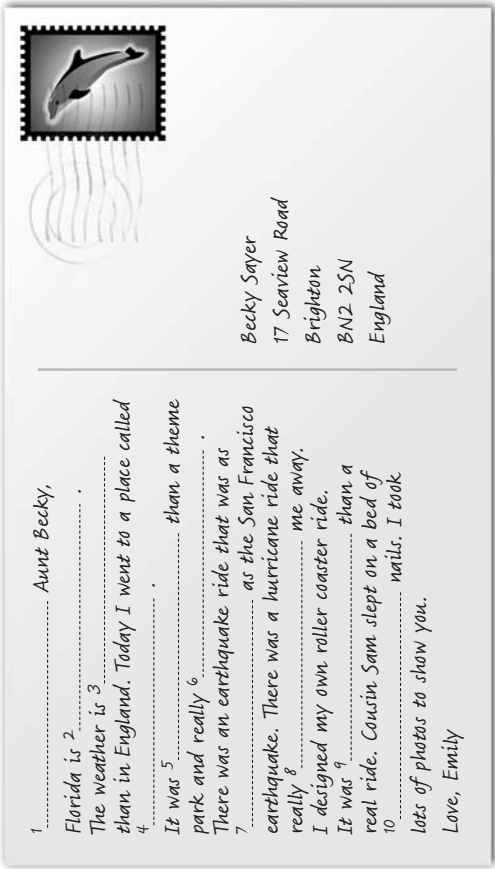 1 Aunt Becky,
Florida is 2 .
The weather is 3
than in England. Today I went to a place called
4 .
It was 5 than a theme
park and really 6 .
There was an earthquake ride that was as
7 as the San Francisco
earthquake. There was a hurricane ride that
really 8 me away.
I designed my own roller coaster ride.
It was 9 than a
real ride. Cousin Sam slept on a bed of
10 nails. I took
lots of photos to show you.
Love, Emily
Becky Sayer
17 Seaview Road
Brighton
BN2 2SN
England